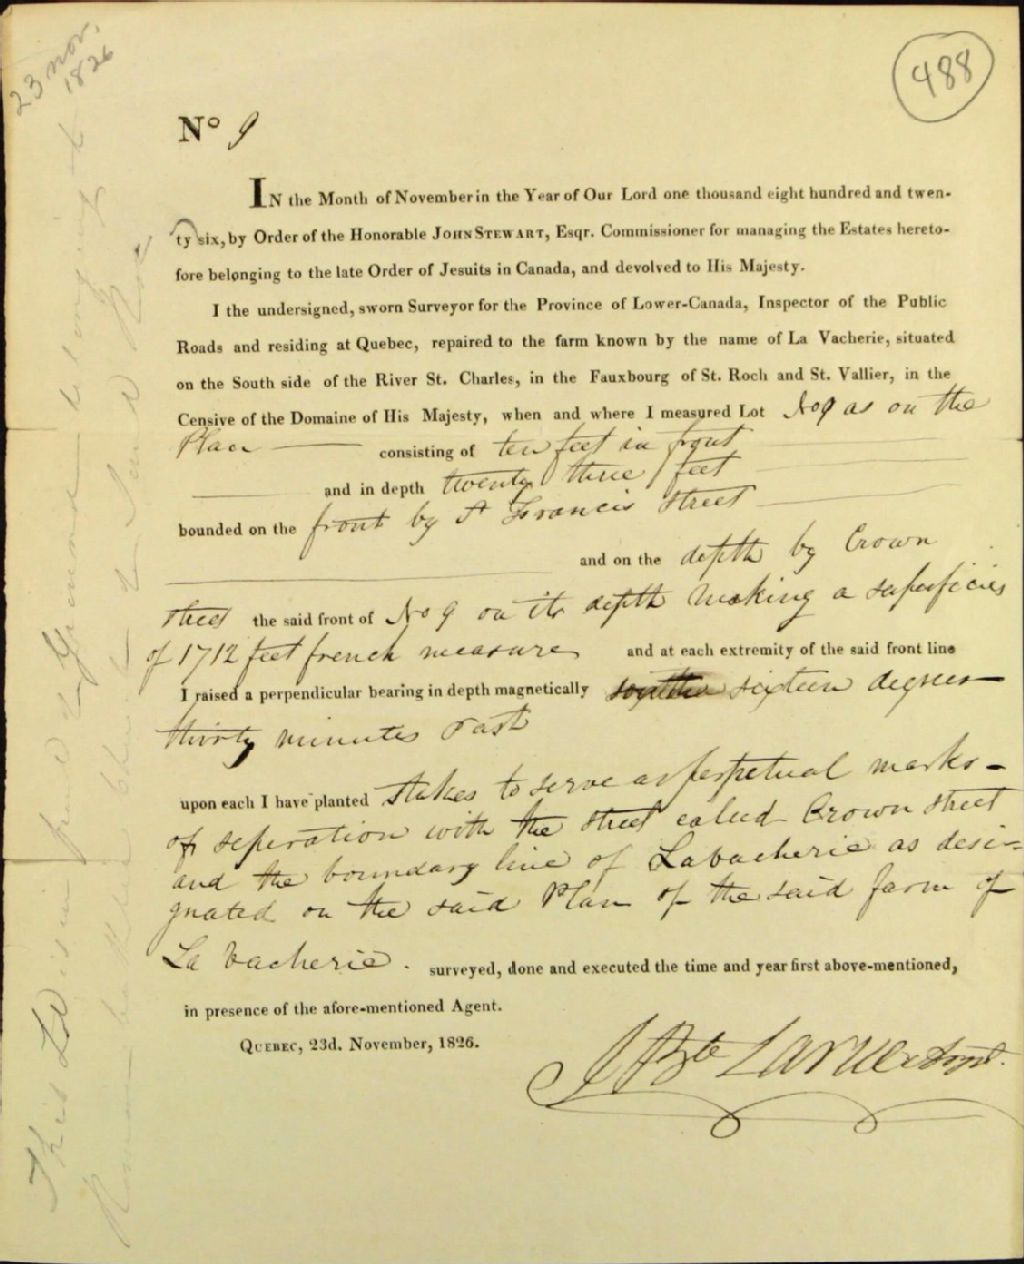 23 nov.
1826
488
No 9
IN the Month of November in the Year of Our Lord one thousand eight hundred and twen-
ty six, by Order of the Honorable JOHN STEWART, Esqr. Commissioner for managing the Estates hereto-
fore belonging to the late Order of Jesuits in Canada, and devolved to His Majesty.
I the undersigned, sworn Surveyor for the Province of Lower-Canada, Inspector of the Public
Roads and residing at Quebec, repaired to the farm known by the name of La Vacherie, situated
on the South side of the River St. Charles, in the Fauxbourg of St. Roch and St. Vallier, in the
Censive of the Domaine of His Majesty, when and where I measured Lot No 9 as on the
Plan consisting of ten feet in front
and in depth twenty three feet
bounded on the front by St Francis Street
and on the depth by Crown
street the said front of No 9 on its depth making a superficies
of 1712 feet french measure and at each extremity of the said front line
I raised a perpendicular bearing in depth magnetically sixteen degrees
thirty minutes East
upon each I have planted stakes to serve as perpetual marks -
of seperation with the street called Crown street
and the boundary line of Lavacherie as desi-
gnated on the said Plan of the said farm of
La Vacherie. surveyed, done and executed the time and year first above-mentioned,
in presence of the afore-mentioned Agent.
QUEBEC, 23d. November, 1826.
J Bte Larue
This Lot is in